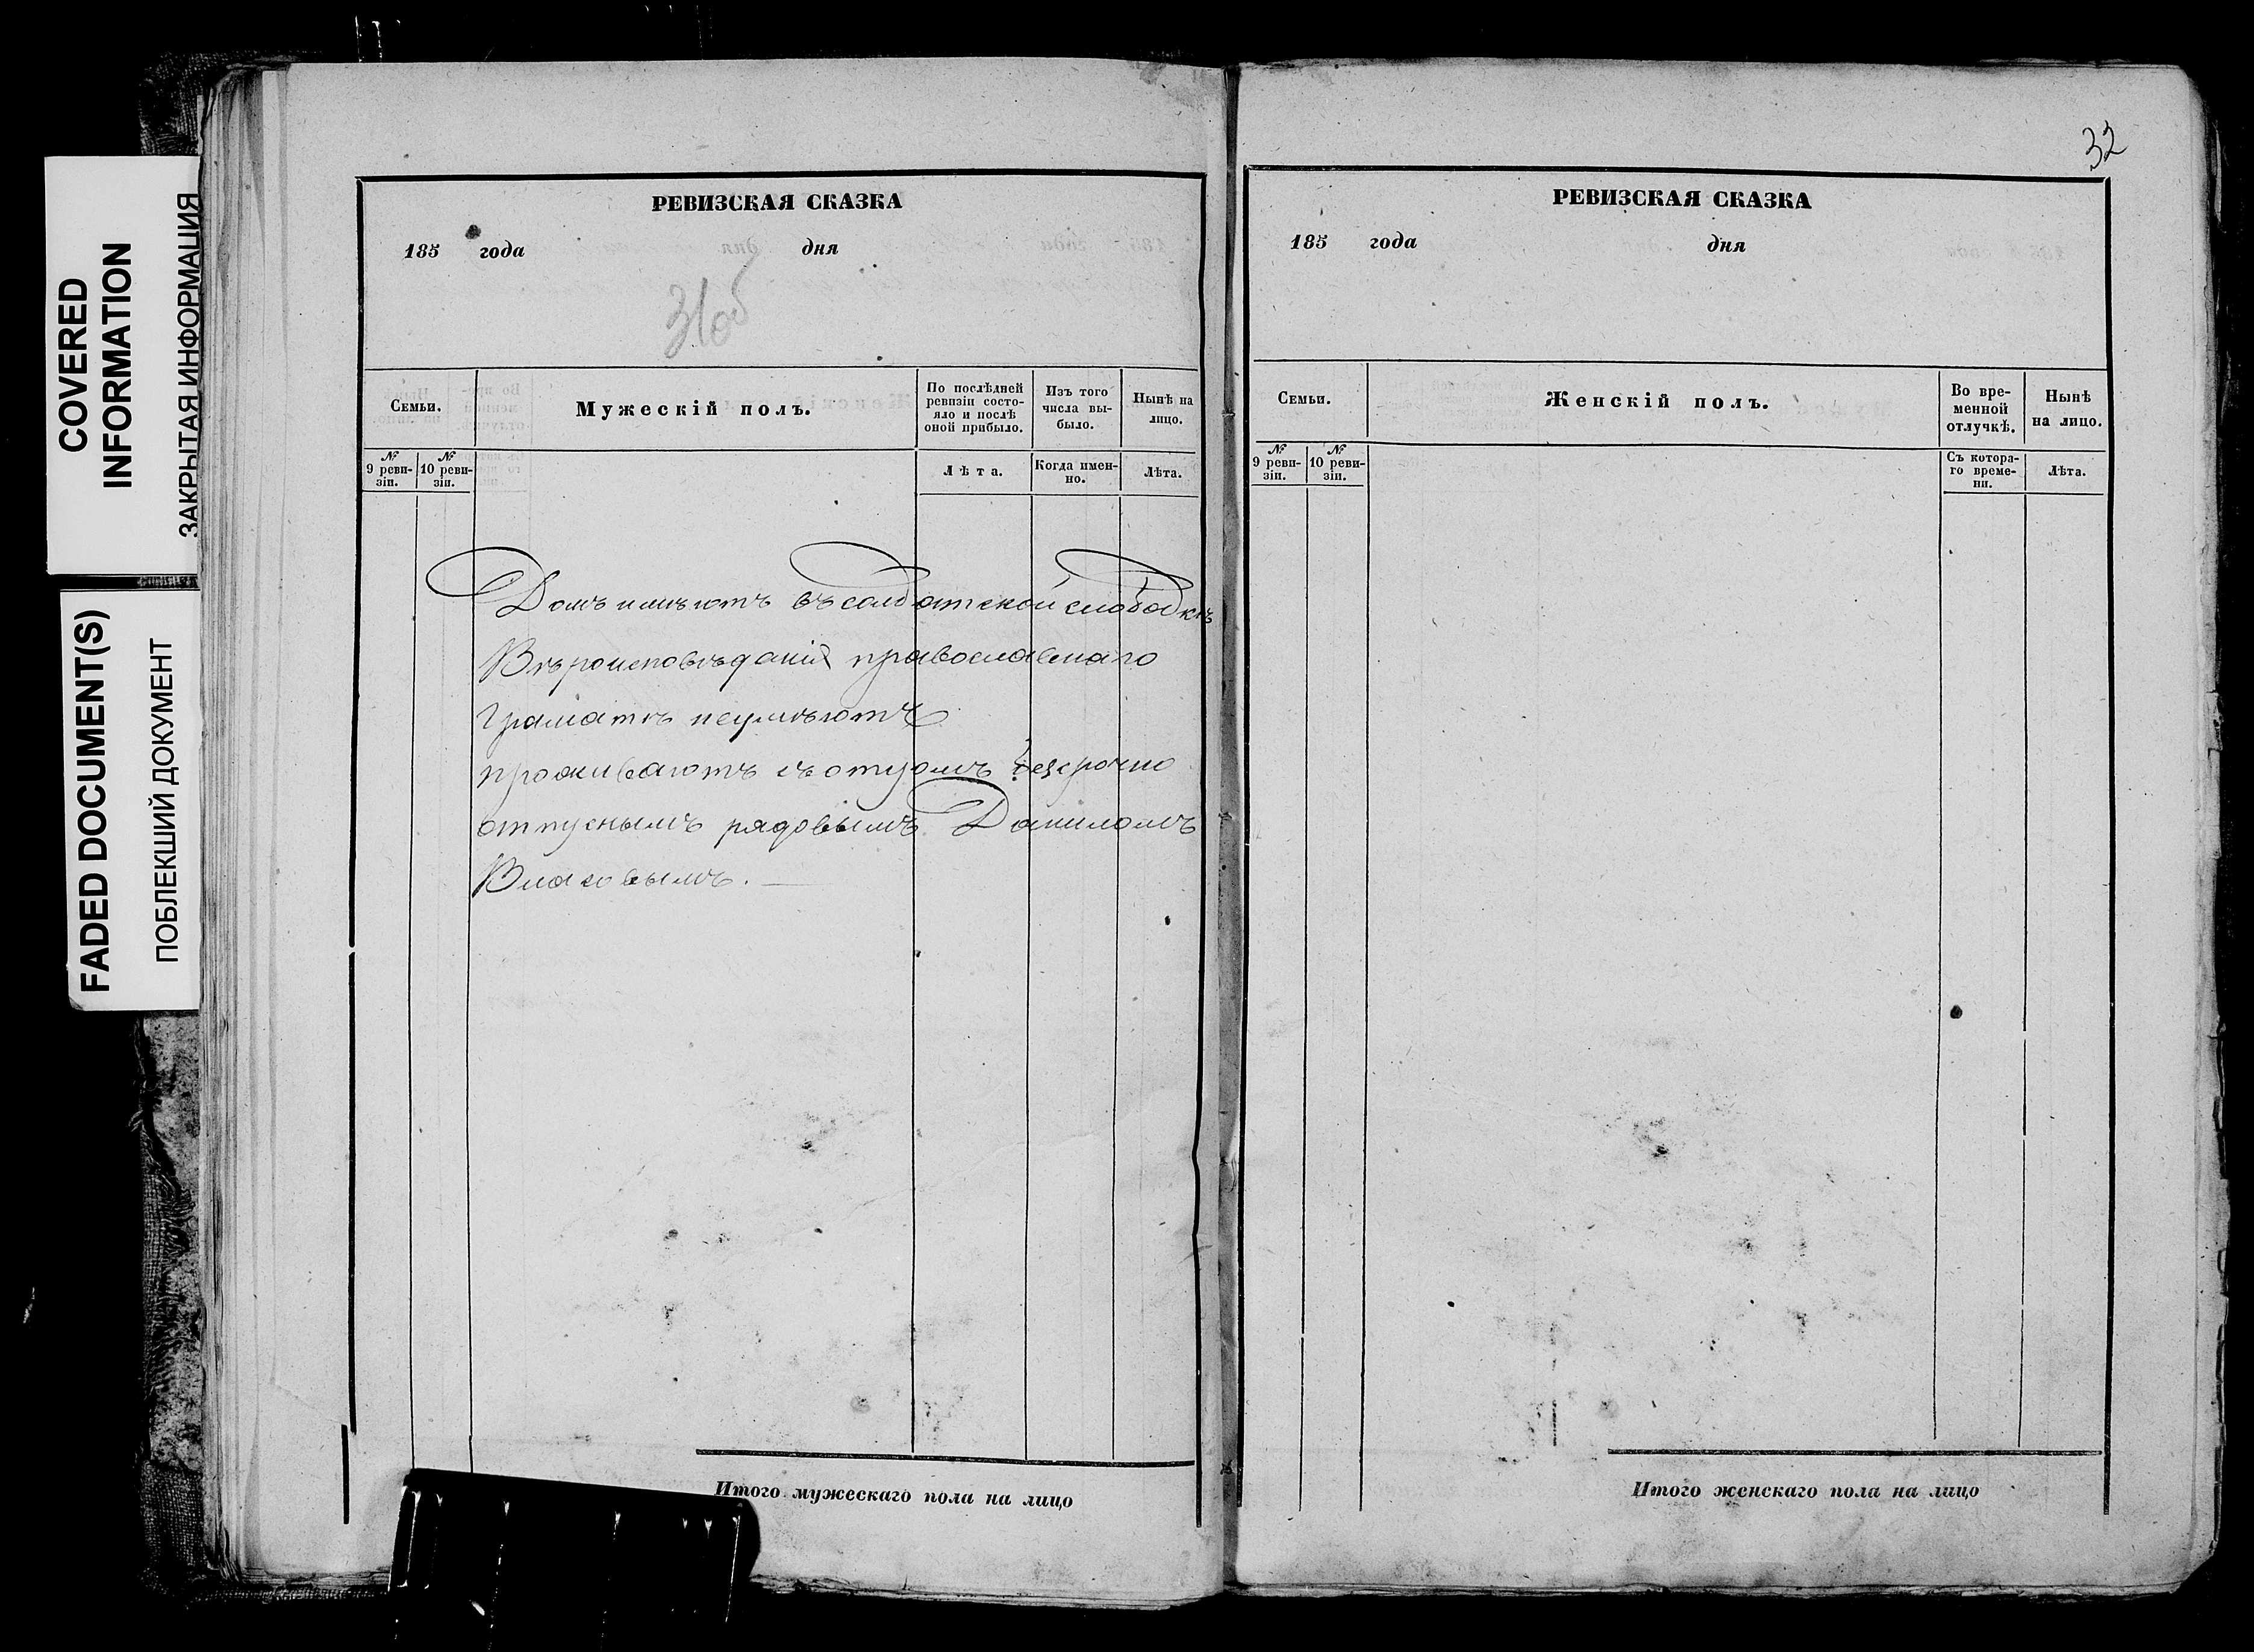 COVERED
INFORMATION
ЗАКРЫТАЯ ИНФОРМАЦИЯ
FADED DOCUMENT(S)
ПОБЛЕКШИЙ ДОКУМЕНТ
РЕВИЗСКАЯ СКАЗКА
185 года дня
31об
Семьи.
Мужескій полъ.
По послѣдней
ревизіи состо-
яло и послѣ
оной прибыло.
Изъ того
числа вы-
было.
Нынѣ на
лицо.
№
9 реви-
зіи.
№
10 реви-
зіи.
Лѣта.
Когда имен-
но.
Лѣта.
Домъ имѣютъ въ солдатской слободкѣ
Вѣроисповѣданія православнаго
Граматѣ неумѣютъ
проживаютъ съ отцомъ безсрочно
отпуснымъ рядовымъ Даниломъ
Власовымъ.
Итого мужескаго пола на лицо
32
РЕВИЗСКАЯ СКАЗКА
185 года дня
Семьи.
Женскій полъ.
Во вре-
менной
отлучкѣ.
Нынѣ
на лицо.
№
9 реви-
зіи.
№
10 реви-
зіи.
Съ котора-
го време-
ни.
Лѣта.
Итого женскаго пола на лицо